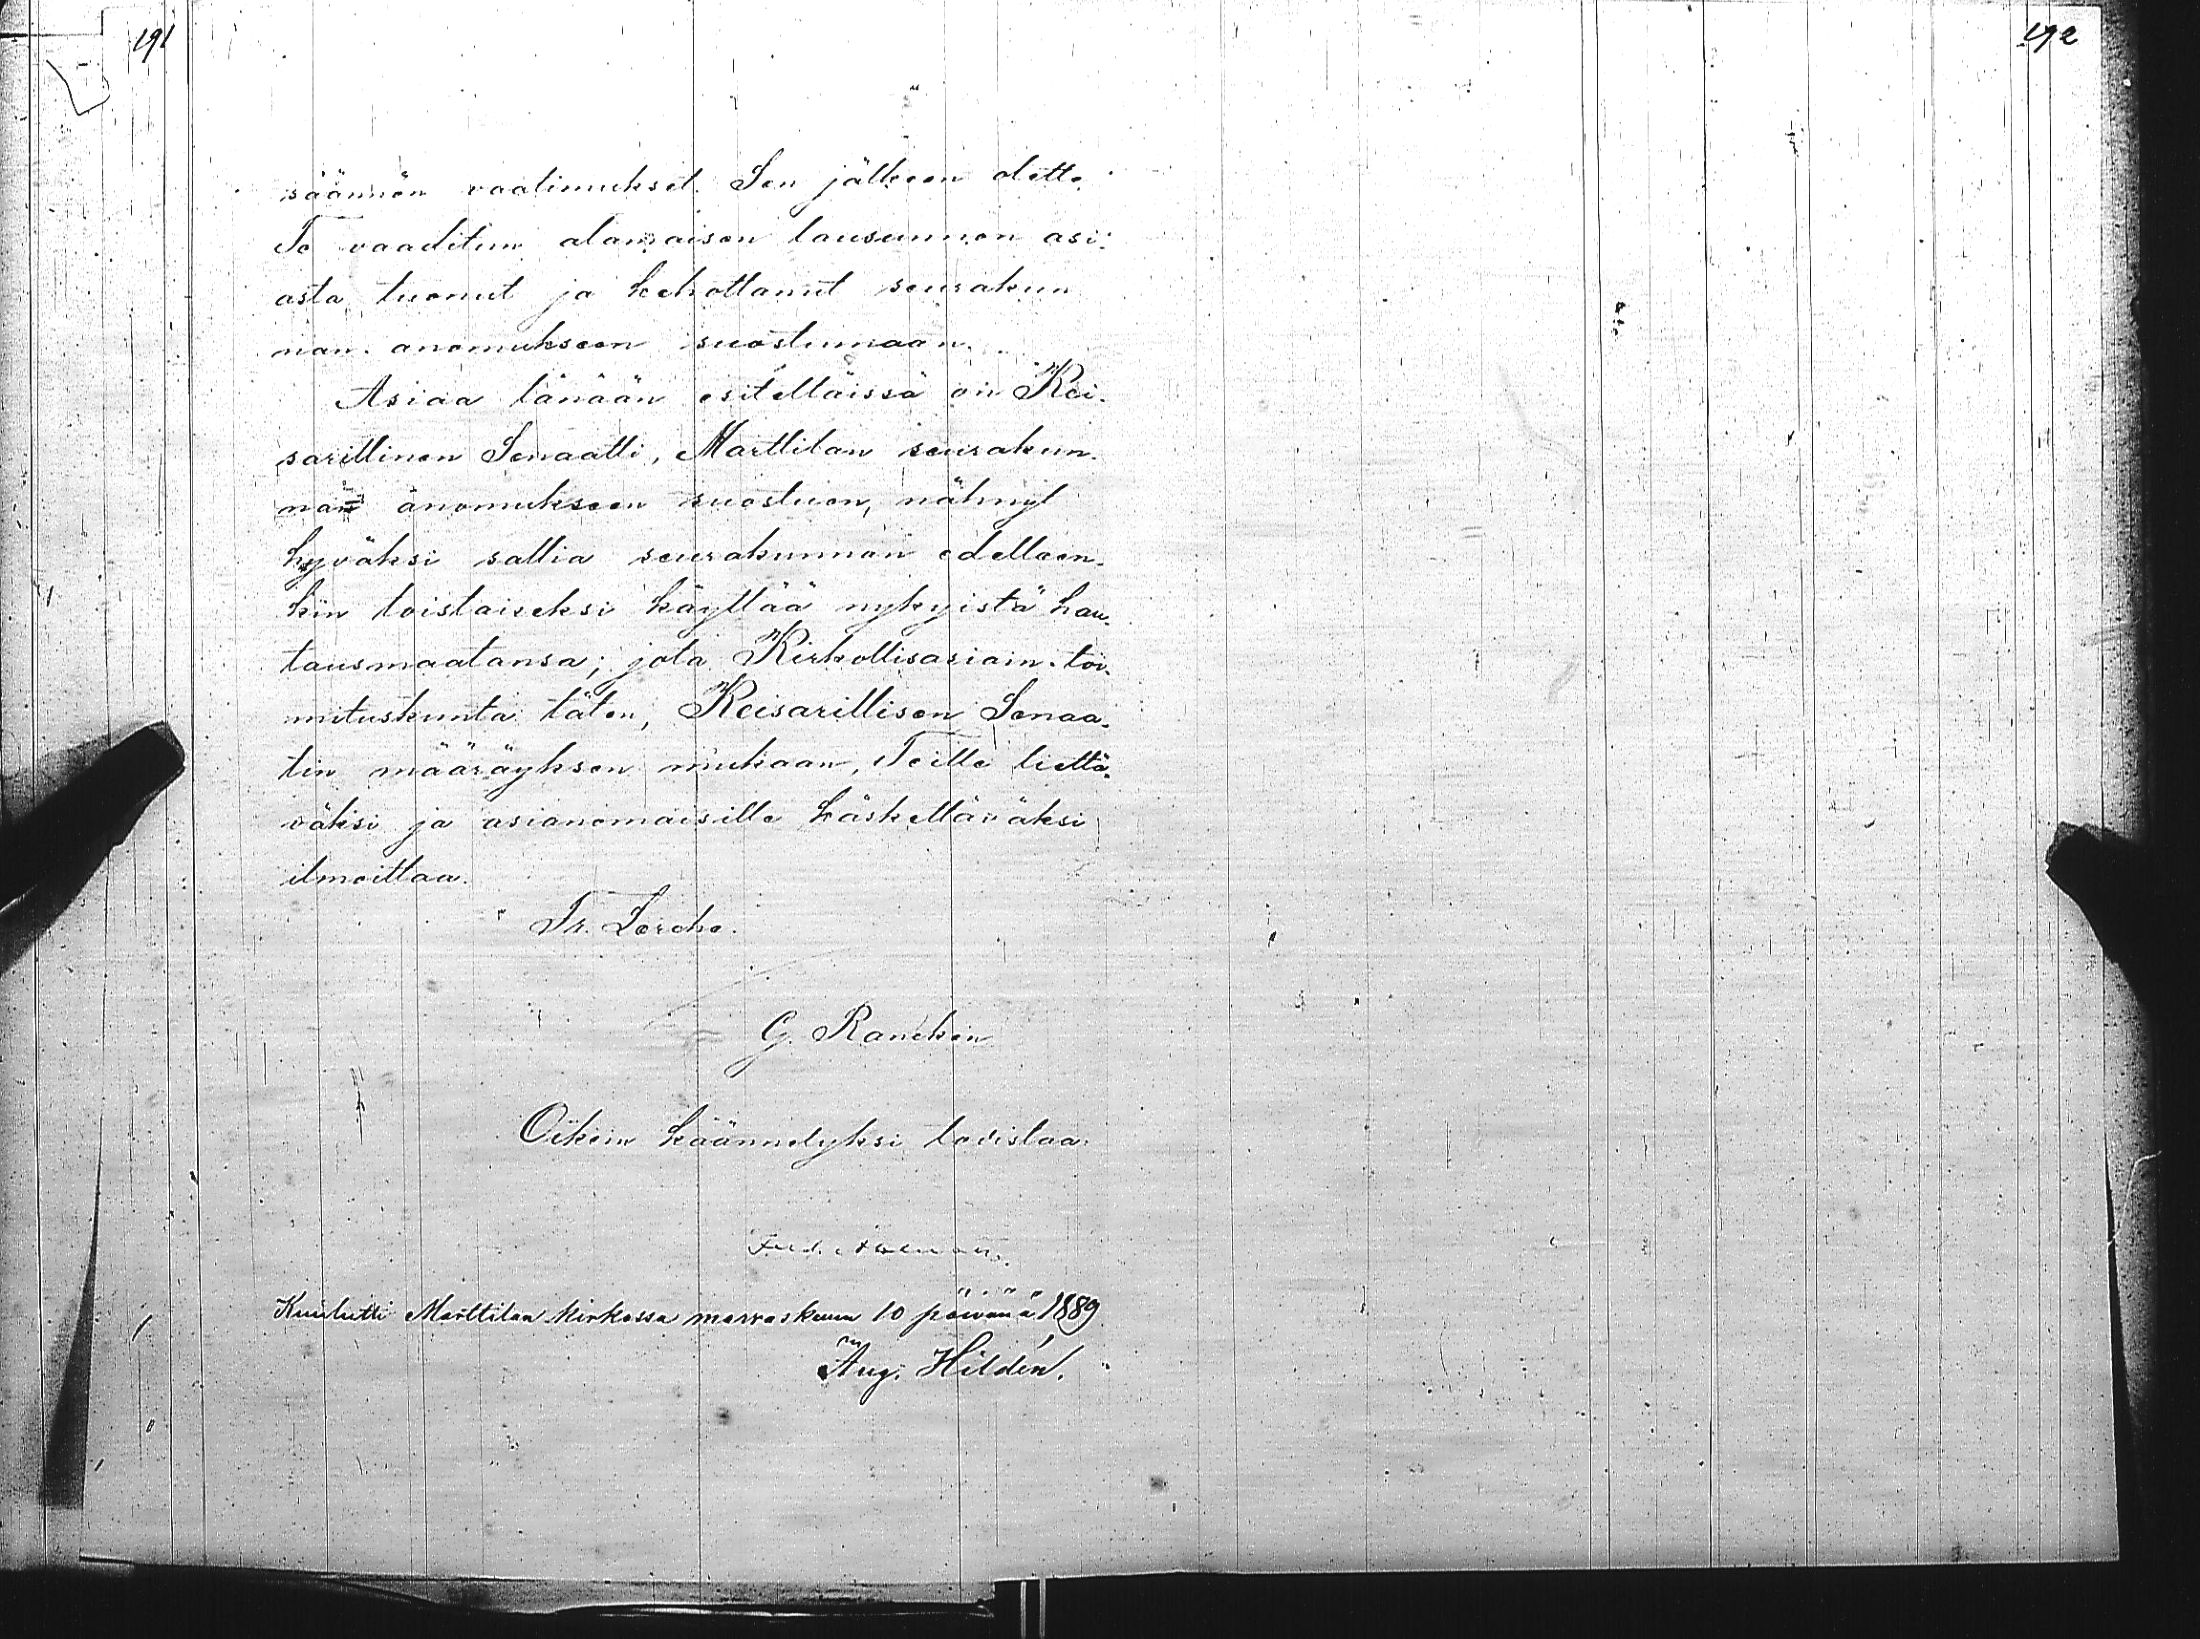 191
192
säännön vaatimukset. Sen jälkeen olette
Te vaaditun alamaisen lausunnon asi-
asta tuonut ja kehottanut seurakun
nan anomukseen suostumaan.
Asiaa tänään esitelläissä on Kei-
sarillinen Senaatti, Marttilan seurakun-
nan anomukseen suostuen, nähnyt
hyväksi sallia seurakunnan edelleen-
kin toistaiseksi käyttää nykyistä hau-
tausmaatansa; jota Kirkollisasiain-toi-
mituskunta täten, Keisarillisen Senaa-
tin määräyksen mukaan, Teille tiettä-
väksi ja asianomaisille käskettäväksi
ilmoittaa.
Tr. Lerche.
G. Rancken
Oikein käännetyksi todistaa:
Kuulutti Marttilan kirkossa marraskuun 10 päivänä 1889
Aug. Hildén.